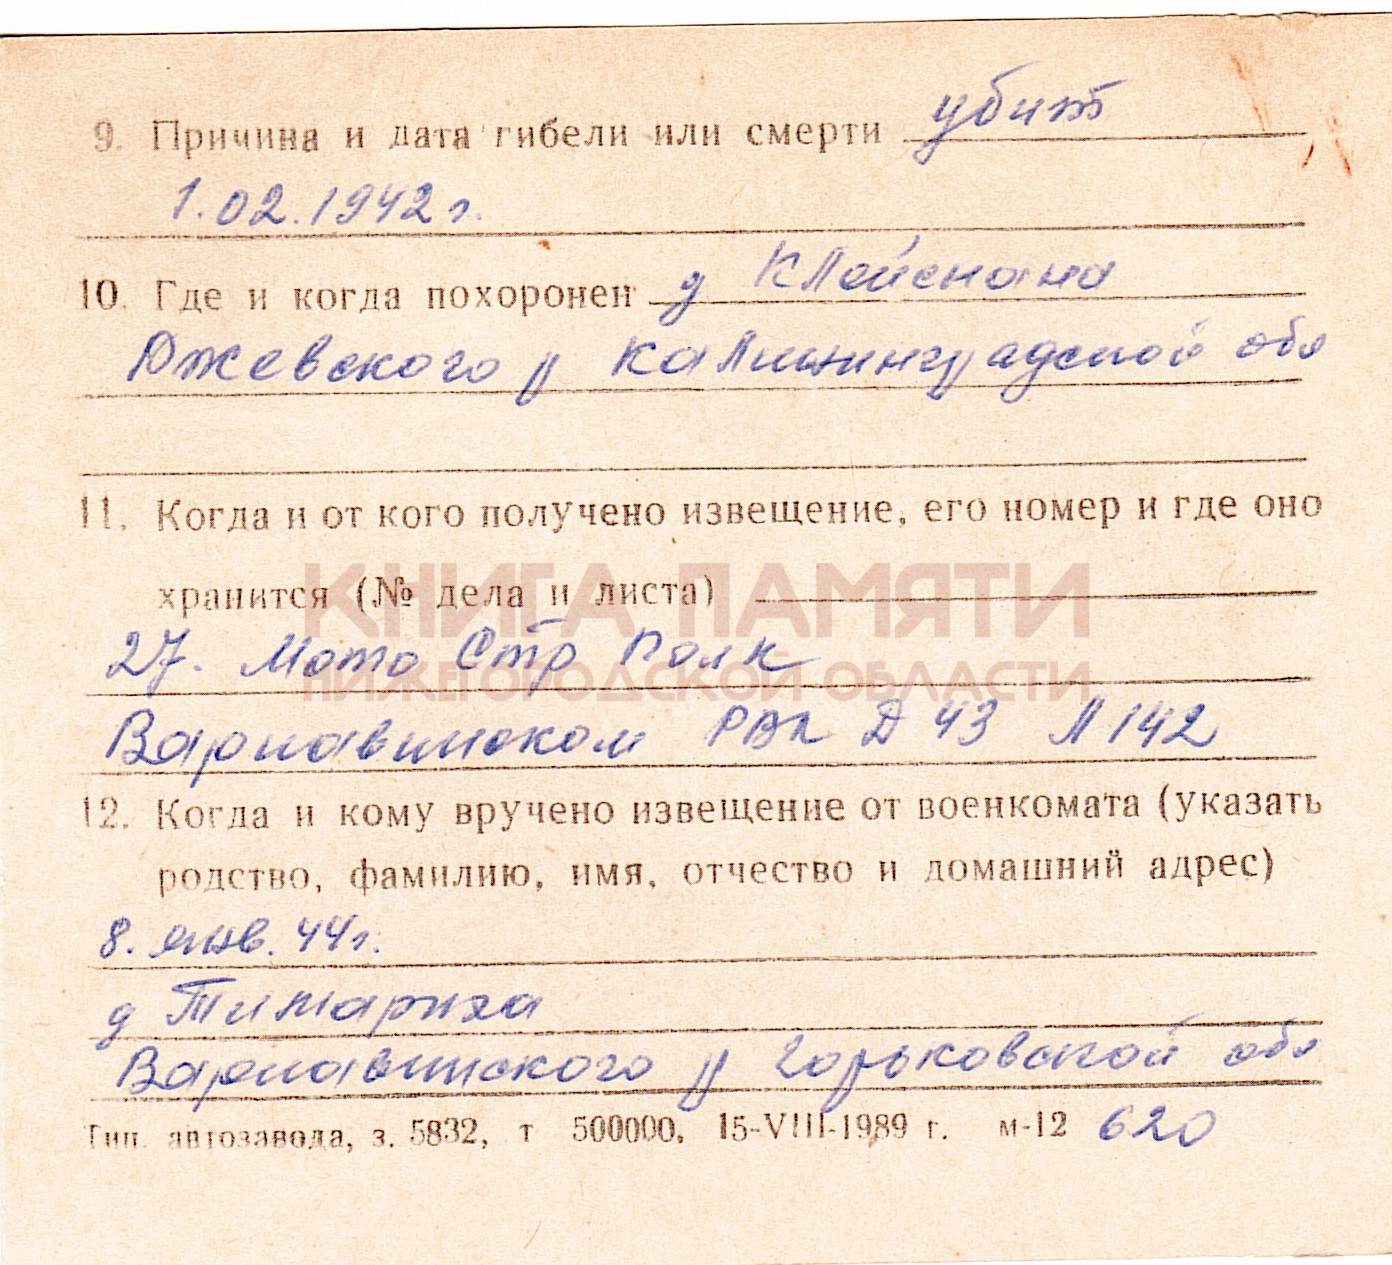 9. Причина и дата гибели или смерти убит
1.02.1942 г.
10. Где и когда похоронен д Клейенана
Ржевского р Калининградской обл
11. Когда и от кого получено извещение, его номер и где оно
хранится (№ дела и листа)
КНИГА ПАМЯТИ
27. Мото Стр Полк
НИЖЕГОРОДСКОЙ ОБЛАСТИ
Варнавинском РВК Д 43 Л 142
12. Когда и кому вручено извещение от военкомата (указать
родство, фамилию, имя, отчество и домашний адрес)
8. янв. 44г.
д Тимариха
Варнавинского р Горьковской обл
Тип. автозавода, з. 5832, т 500000, 15-VIII-1989 г. м-12 620